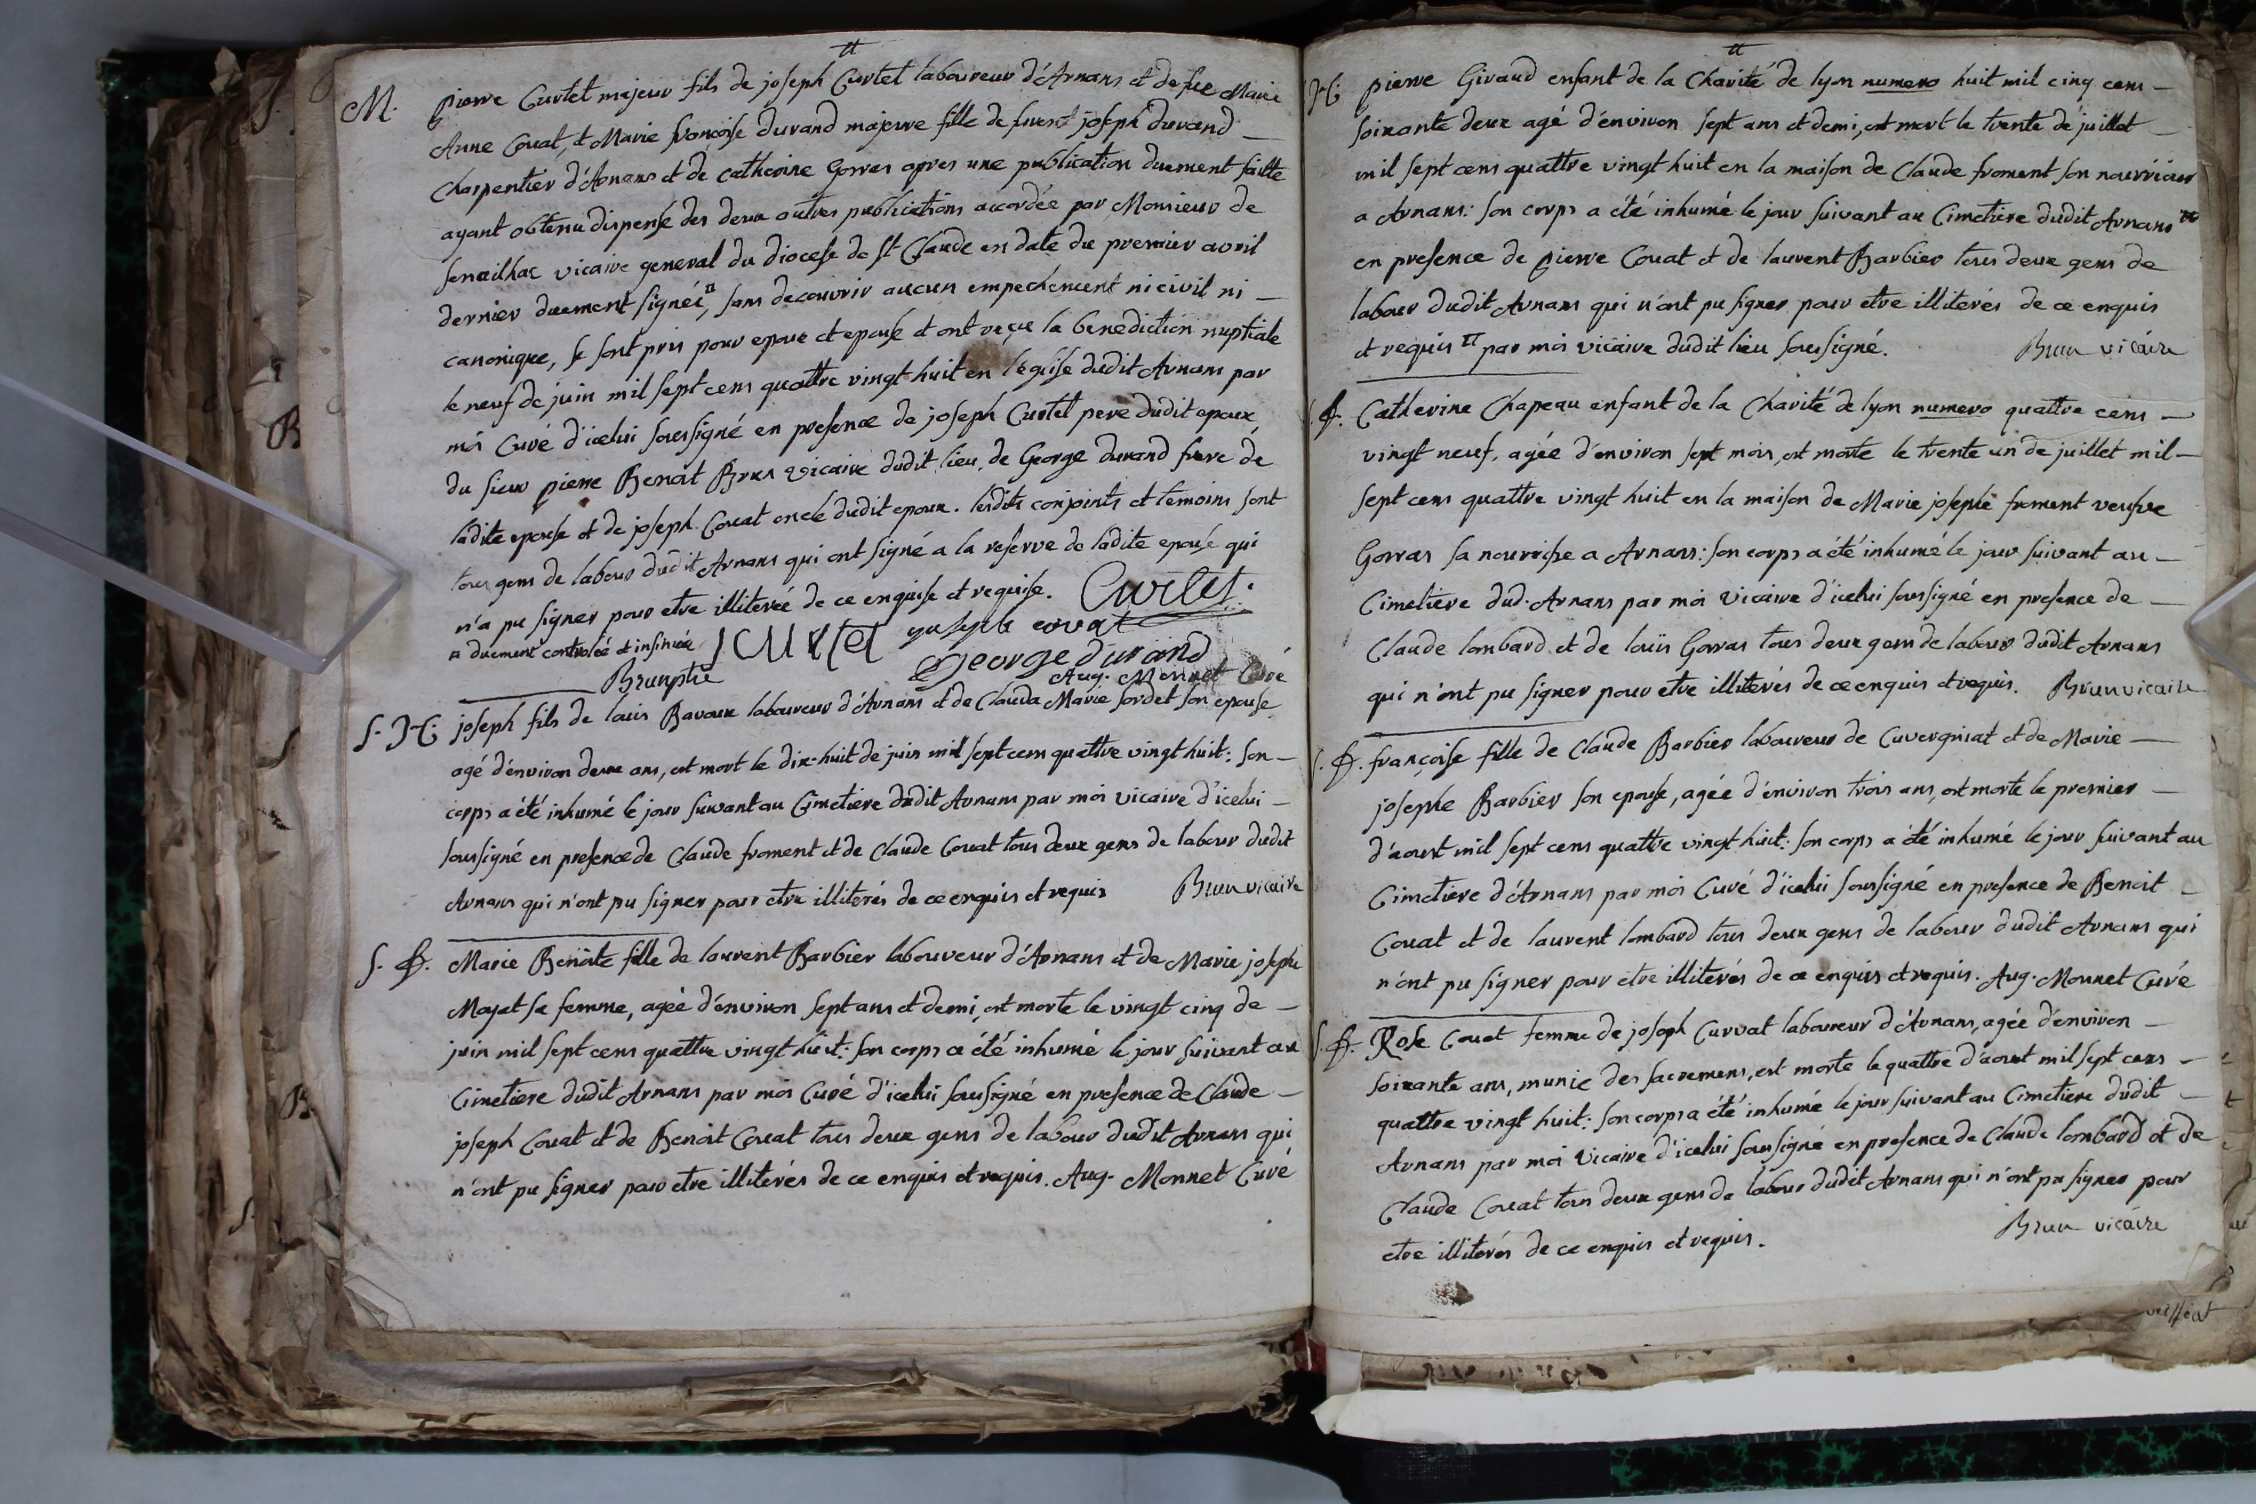 M. pierre Curtet majeur fils de joseph Curtet laboureur d'Arnans et de feue Marie
Anne Couat, et Marie françoise durand majeure fille de furent joseph durand
Charpentier d'Arnans et de catherine Gorras apres une publication duement faitte
ayant obtenu dispense des deux autres publications accordée par Monsieur de
senailhac vicaire general du diocese de st Claude en date du premier avril
dernier duement signée ¤, sans decouvrir aucun empechement ni civil ni
canonique, se sont pris pour epoux et epouse et ont reçue la benediction nuptiale
le neuf de juin mil sept cens quattre vingt huit en l'eglise dudit Arnans par
moi Curé d'icelui soussigné en presence de joseph Curtet pere dudit epoux,
du sieur pierre Benoit Brun vicaire dudit lieu, de George durand frere de
ladite epouse et de joseph Couat oncle dudit epoux. lesdits conjoints et temoins sont
tous gens de labour dudit Arnans qui ont signé a la reserve de ladite epouse qui
n'a pu signer pour etre illiterée de ce enquise et requise. Curtet.
¤ duement controlée et insinuée J CURTET joseph couat
George durand
Brun ptre Aug. Monnet Curé
S. H. joseph fils de louis Bavoux laboureur d'Arnans et de Clauda Marie sordet son epouse
agé d'environ deux ans, est mort le dix-huit de juin mil sept cens quattre vingt huit: son
corps a été inhumé le jour suivant au Cimetiere dudit Arnans par moi vicaire d'icelui
soussigné en presence de Claude froment et de Claude Couat tous deux gens de labour dudit
Arnans qui n'ont pu signer pour etre illiterés de ce enquis et requis Brun vicaire
S. F. Marie Benoite fille de laurent Barbier laboureur d'Arnans et de Marie josephe
Moyat sa femme, agée d'environ sept ans et demi, est morte le vingt cinq de
juin mil sept cens quattre vingt huit: son corps a été inhumé le jour suivant au
Cimetiere dudit Arnans par moi Curé d'icelui soussigné en presence de Claude
joseph Couat et de Benoit Couat tous deux gens de labour dudit Arnans qui
n'ont pu signer pour etre illiterés de ce enquis et requis. Aug. Monnet Curé
H. pierre Giraud enfant de la Charité de lyon numero huit mil cinq cens
soixante deux agé d'environ sept ans et demi, est mort le trente de juillet
mil sept cens quattre vingt huit en la maison de Claude froment son nourricier
a Arnans: son corps a été inhumé le jour suivant au Cimetiere dudit Arnans
en presence de pierre Couat et de laurent Barbier tous deux gens de
labour dudit Arnans qui n'ont pu signer pour etre illiterés de ce enquis
et requis ¤ par moi vicaire dudit lieu soussigné. Brun vicaire
S. F. Catherine Chapeau enfant de la Charité de lyon numero quattre cens
vingt neuf, agée d'environ sept mois, est morte le trente un de juillet mil
sept cens quattre vingt huit en la maison de Marie josephe froment veufve
Gorras sa nourrisse a Arnans: son corps a été inhumé le jour suivant au
Cimetiere dud. Arnans par moi vicaire d'icelui soussigné en presence de
Claude lombard et de louis Gorras tous deux gens de labour dudit Arnans
qui n'ont pu signer pour etre illiterés de ce enquis et requis. Brun vicaire
S. F. françoise fille de Claude Barbier laboureur de Cuvergniat et de Marie
josephe Barbier son epouse, agée d'environ trois ans, est morte le premier
d'aoust mil sept cens quattre vingt huit: son corps a été inhumé le jour suivant au
Cimetiere d'Arnans par moi Curé d'icelui soussigné en presence de Benoit
Couat et de laurent lombard tous deux gens de labour dudit Arnans qui
n'ont pu signer pour etre illiterés de ce enquis et requis. Aug. Monnet Curé
S. F. Rose Couat femme de joseph Curvat laboureur d'Arnans, agée d'environ
soixante ans, munie des sacremens, est morte le quattre d'aoust mil sept cens
quattre vingt huit: son corps a été inhumé le jour suivant au Cimetiere dudit
Arnans par moi vicaire d'icelui soussigné en presence de Claude lombard et de
Claude Couat tous deux gens de labour dudit Arnans qui n'ont pu signer pour
etre illiterés de ce enquis et requis. Brun vicaire